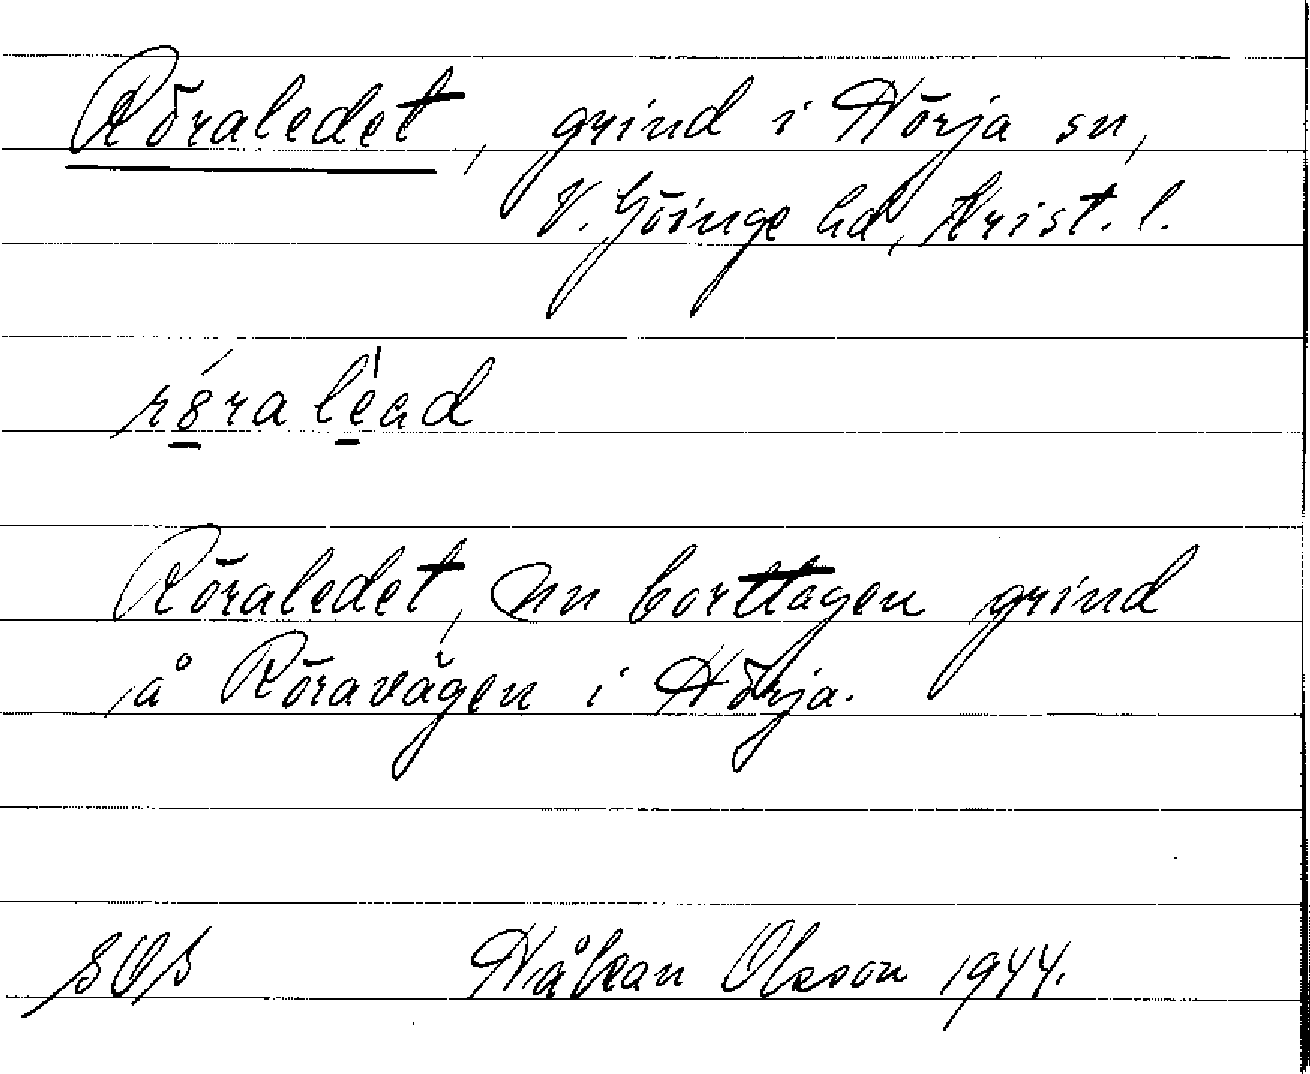 Röraledet, grind i Hörja sn,
V. Göinge hd, Krist. l.
Röraledet, nu borttagen grind
å Röravägen i Hörja.
Håkan Olsson 1944.